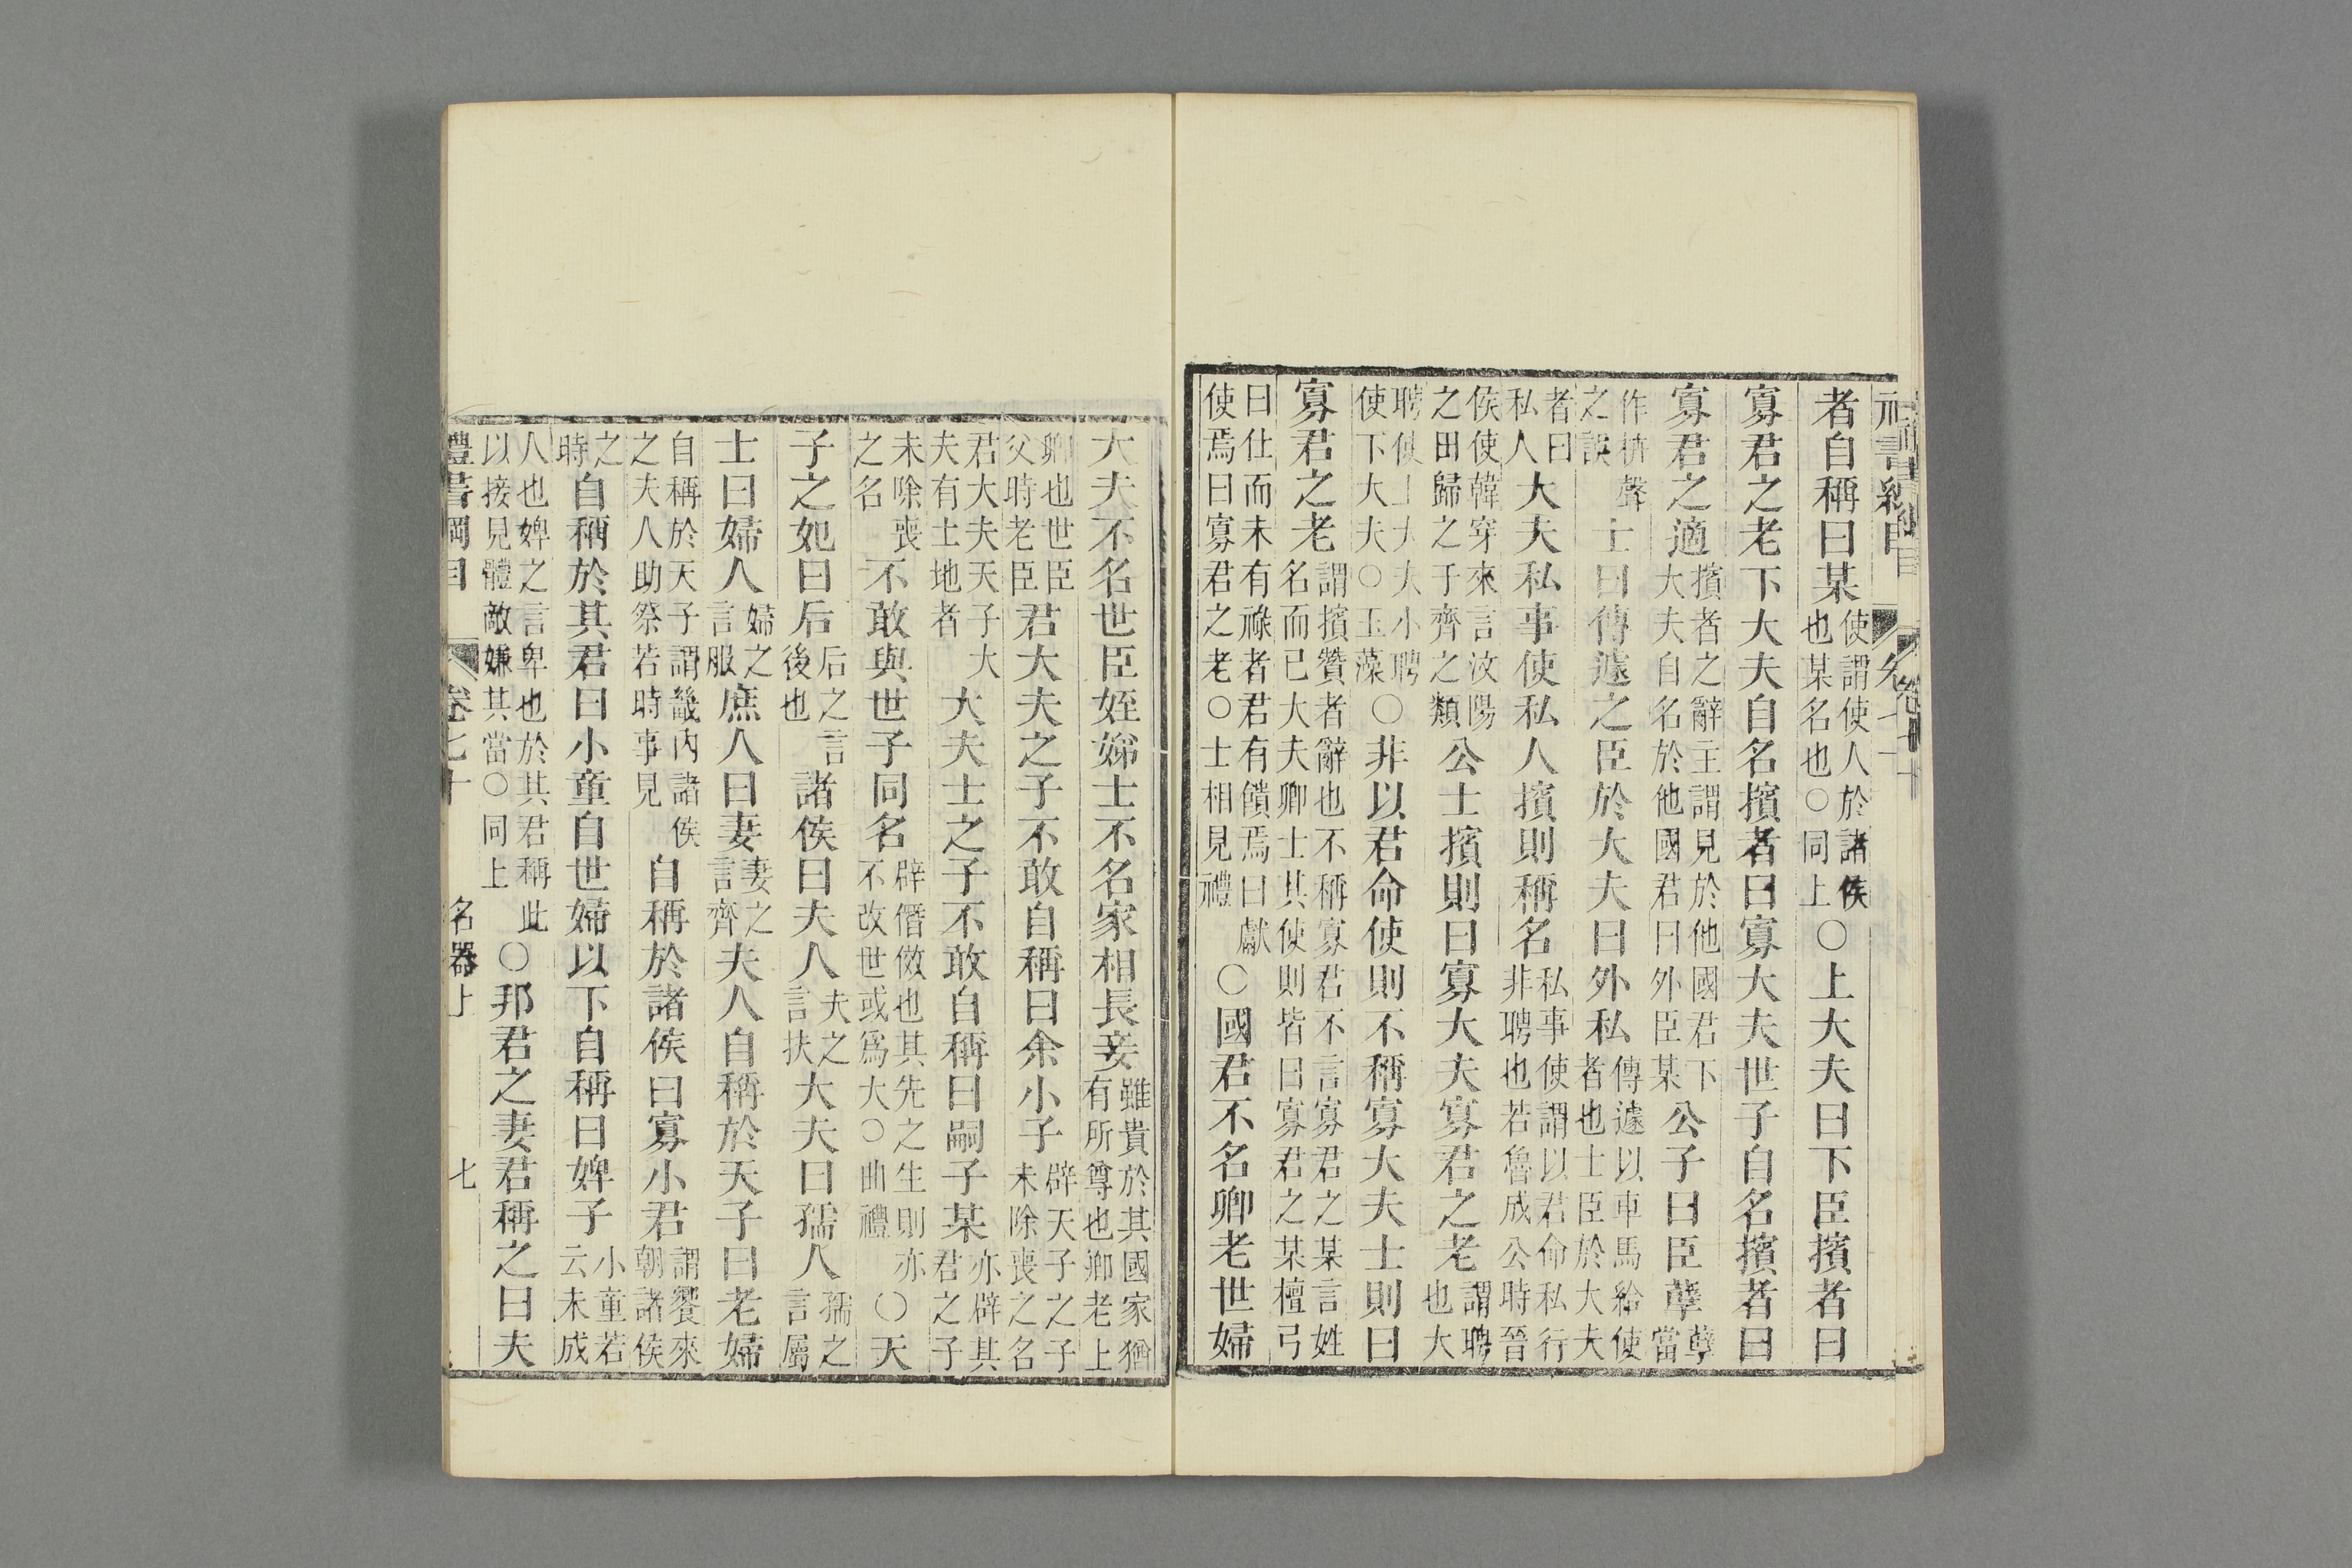 者自稱曰某使謂使人於諸侯也某名也○同上○上大夫曰下臣擯者曰
寡君之老下大夫自名擯者曰寡大夫世子自名擯者曰
寡君之適擯者之辭主謂見於他國君下大夫自名於他國君曰外臣某公子曰臣孽孽當
作枿聲之誤士曰傳遽之臣於大夫曰外私傳遽以車馬給使者也士臣於大夫
者曰私人大夫私事使私人擯則稱名私事使謂以君命私行非聘也若魯成公時晉
侯使韓穿來言汶陽之田歸之于齊之類公士擯則曰寡大夫寡君之老謂聘也大
聘使上大夫小聘使下大夫○玉藻○非以君命使則不稱寡大夫士則曰
寡君之老謂擯贊者辭也不稱寡君不言寡君之某言姓名而已大夫卿士其使則皆曰寡君之某檀弓
曰仕而未有祿者君有饋焉曰獻使焉曰寡君之老○士相見禮○國君不名卿老世婦
大夫不名世臣姪娣士不名家相長妾雖貴於其國家猶有所尊也卿老上
卿也世臣父時老臣君大夫之子不敢自稱曰余小子辟天子之子未除喪之名
君大夫天子大夫有土地者大夫士之子不敢自稱曰嗣子某亦辟其君之子
未除喪之名不敢與世子同名辟僭傚也其先之生則亦不改世或爲大○曲禮○天
子之妃曰后后之言後也諸侯曰夫人夫之言扶大夫曰孺人孺之言屬
士曰婦人婦之言服庶人曰妻妻之言齊夫人自稱於天子曰老婦
自稱於天子謂畿內諸侯之夫人助祭若時事見自稱於諸侯曰寡小君謂饗來朝諸侯
之時自稱於其君曰小童自世婦以下自稱曰婢子小童若云未成
人也婢之言卑也於其君稱此以接見體敵嫌其當○同上○邦君之妻君稱之曰夫
禮書綱目 卷七十 名器上 七